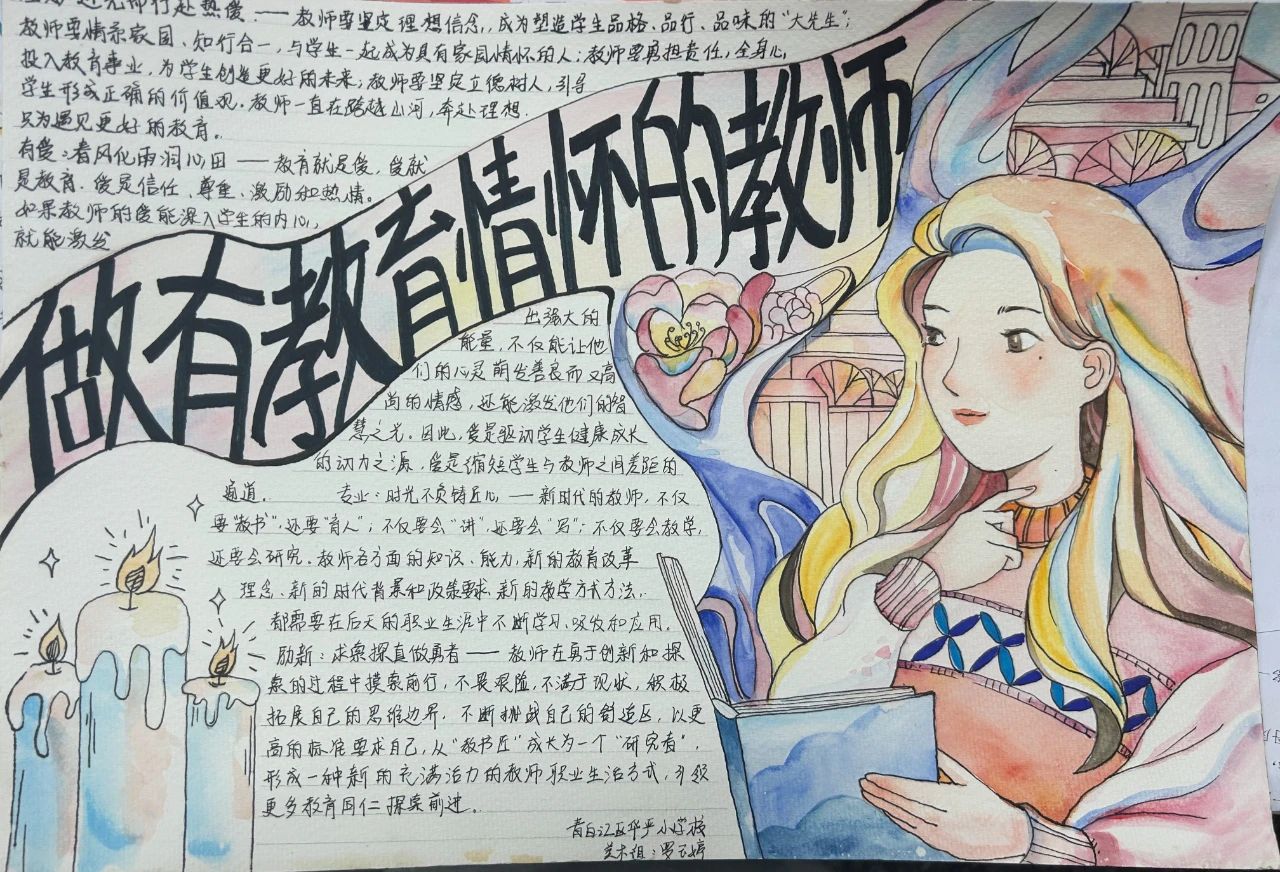 赴热爱 —— 教师要坚定理想信念,成为塑造学生品格、品行、品味的"大先生";
教师要情系家国、知行合一,与学生一起成为具有家国情怀的人;教师要勇担责任,全身心
投入教育事业,为学生创造更好的未来;教师要坚定立德树人,引导
学生形成正确的价值观。教师一直在跨越山河,奔赴理想.
只为遇见更好的教育。
有爱:春风化雨润心田 —— 教育就是爱,爱就
是教育.爱是信任、尊重、激励和热情。
如果教师的爱能深入学生的内心,
就能激发
做有教育情怀的教师
出强大的
能量,不仅能让他
们的心灵萌发善良而又高
尚的情感,还能激发他们的智
慧之光。因此,爱是驱动学生健康成长
的动力之源,爱是缩短学生与教师之间差距的
通道. 专业:时光不负铸匠心 —— 新时代的教师,不仅
要"教书",还要"育人";不仅要会"讲",还要会"写";不仅要会教学,
还要会研究、教师各方面的知识、能力,新的教育改革
理念、新的时代背景和政策要求,新的教学方式方法,
都需要在后天的职业生涯中不断学习、吸收和应用.
励新:求索探真做勇者 —— 教师在勇于创新和探
索的过程中摸索前行,不畏艰险,不满于现状,积极
拓展自己的思维边界,不断挑战自己的舒适区,以更
高的标准要求自己,从"教书匠"成长为一个"研究者",
形成一种新的充满活力的教师职业生活方式,引领
更多教育同仁探索前进。
青白江区华严小学校
艺术组:罗云婷